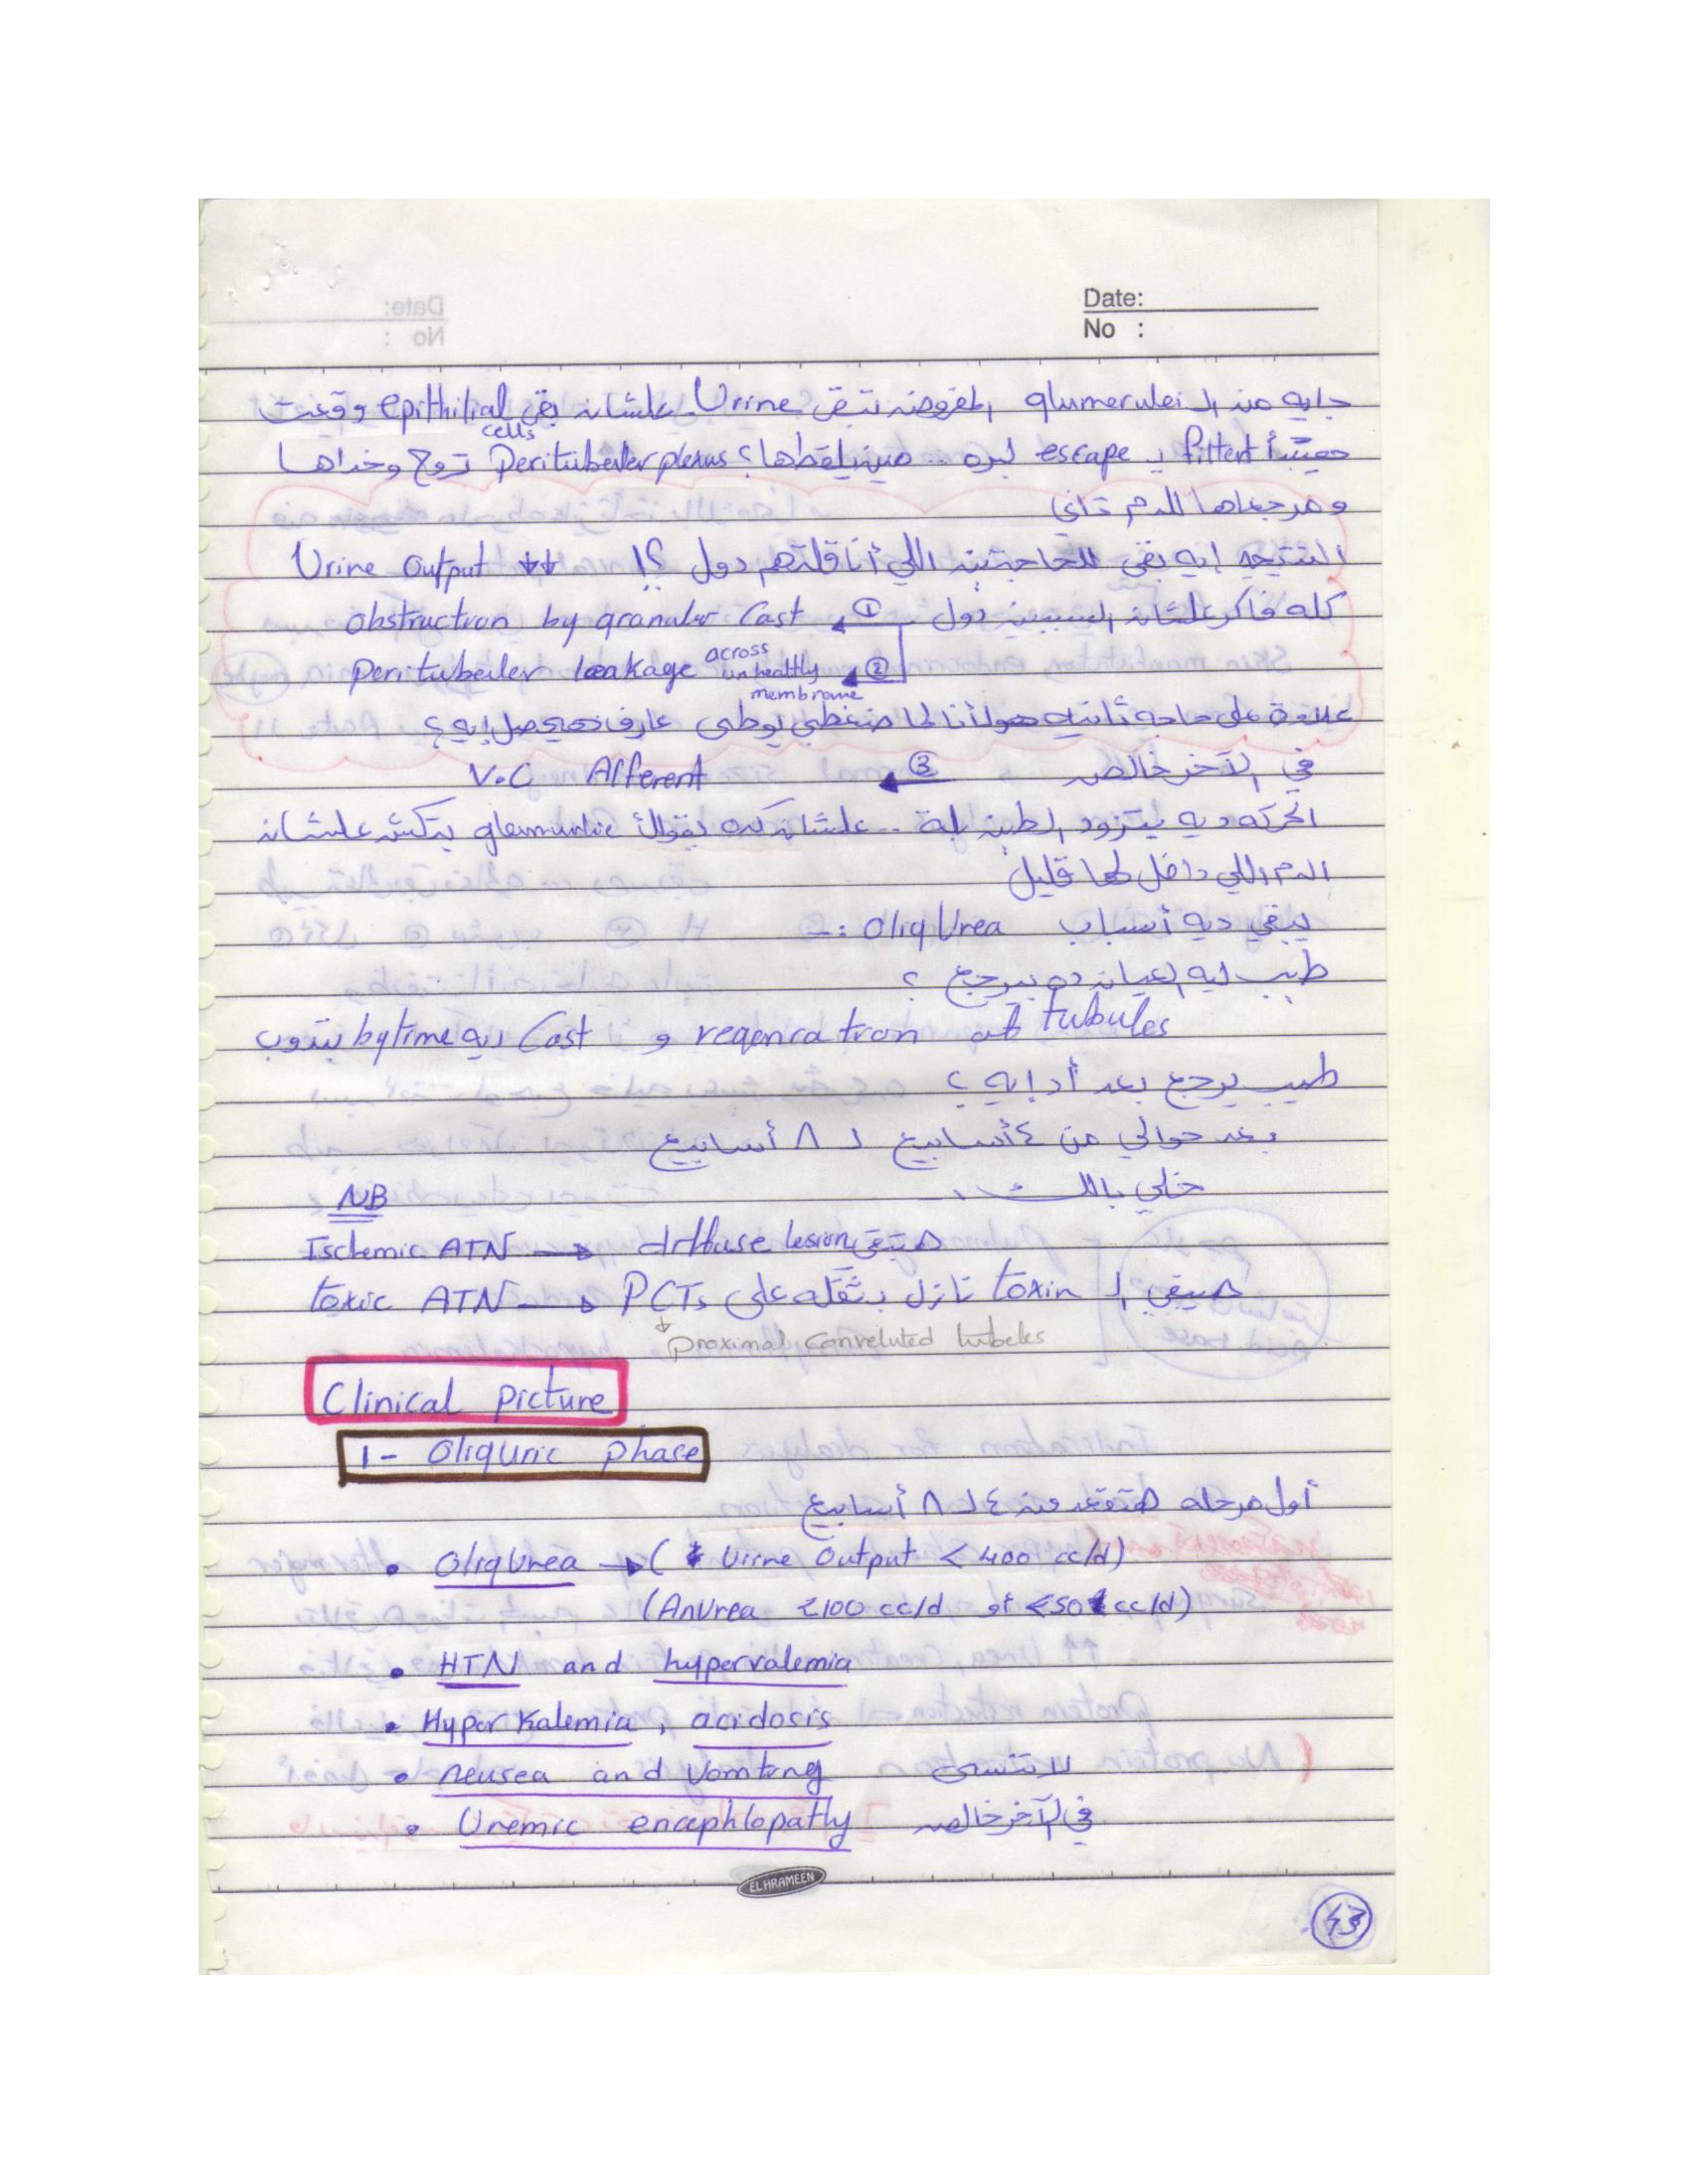 Date:
No :
جايه من الـ glumerulei المفروض تبقى Urine علشان بقى epithilial cells وقعت
هيبتدأ filtert يـ escape لبره .. مين يلقطها؟ Peritubeler plexus تروح وخداها
ومرجعاها للدم تاني
النتيجه إيه بقى للحاجتين اللي أنا قلتهم دول ؟! Urine output ↓↓
كله فاكر علشان السببين دول ① obstruction by granular Cast
② peritubeiler leakage across unhealthy membrane
علاوة على حاجه تانيه هو أنا لما ضغطي يوطى عارف هيحصل إيه ؟
في الآخر خالص ③ V.C Afferent
الحركه ديه بتزود الطين بلة .. علشان كده يقولك glomerulie بتكش علشان
الدم اللي داخل لها قليل
يبقي ديه أسباب OliqUrea :-
طيب ليه العيان ده بيرجع ؟
regenration of tubules و Cast ديه by time بتدوب
طيب يرجع بعد أد إيه ؟
بعد حوالي من ٤ أسابيع لـ ٨ أسابيع
خلي بالك ..
NB
Ischemic ATN → diffuse lesion هتبقى
toxic ATN → PCTs هيبقي الـ toxin نازل بتقله على
↓ proximal conveluted tubeles
Clinical picture
1- Oliquric phase
أول مرحله هتقعد من ٤ لـ ٨ أسابيع
• OliqUrea → ( Urine Output < 400 cc/d)
(AnUrea <100 cc/d or <50 cc/d)
• HTN and hypervalemia
• Hyper Kalemia , acidosis
• neusea and Vomting لا تنسى
• Uremic encephlopathy في الآخر خالص
EL HRAMEEN
43